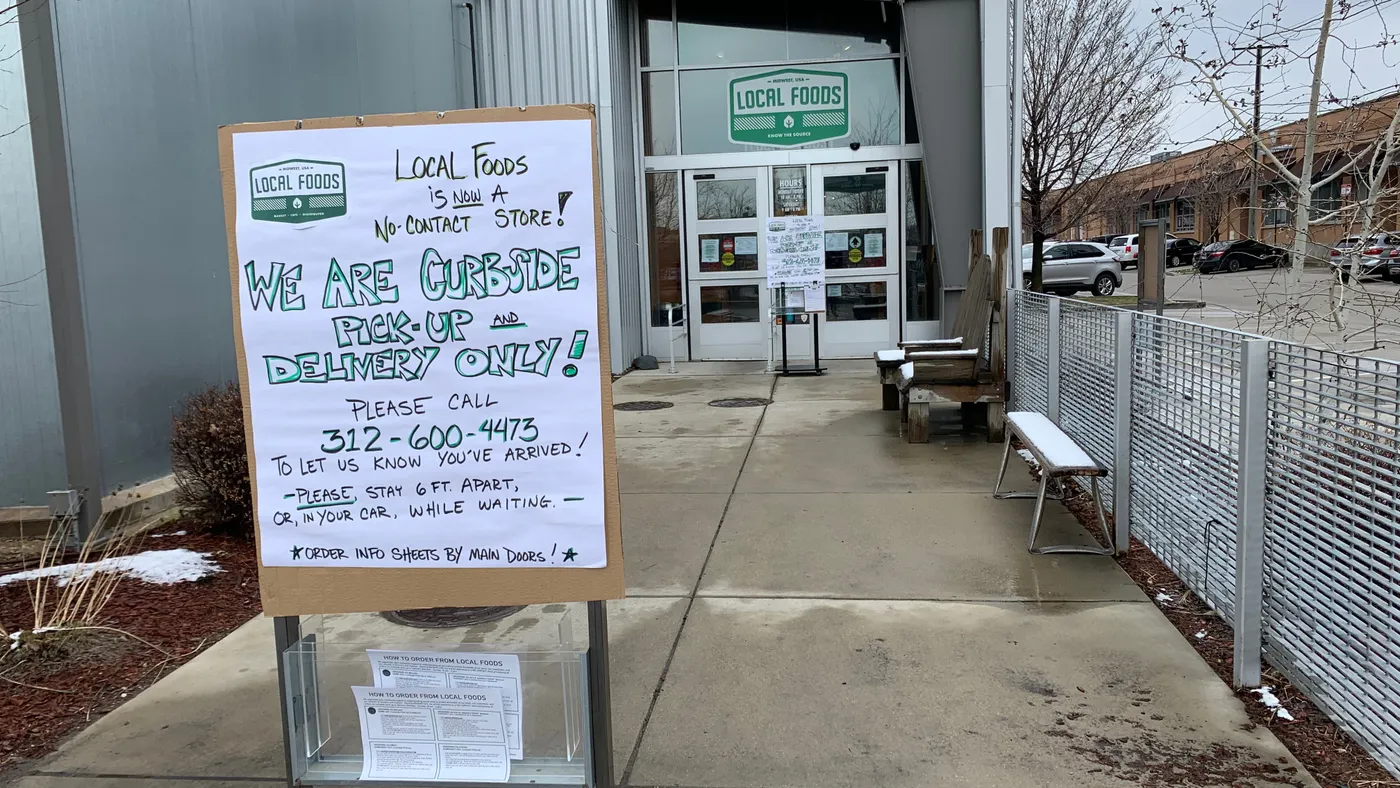 MIDWEST, USA
LOCAL FOODS
KNOW THE SOURCE
HOURS
MIDWEST, USA
LOCAL FOODS
MARKET • CAFE • DISTRIBUTION
LOCAL FOODS
IS NOW A
NO-CONTACT STORE!
WE ARE CURBSIDE
PICK-UP AND
DELIVERY ONLY!
PLEASE CALL
312-600-4473
TO LET US KNOW YOU'VE ARRIVED!
- PLEASE, STAY 6 FT. APART,
OR, IN YOUR CAR, WHILE WAITING. -
★ORDER INFO SHEETS BY MAIN DOORS!★
HOW TO ORDER FROM LOCAL FOODS
HOW TO ORDER FROM LOCAL FOODS